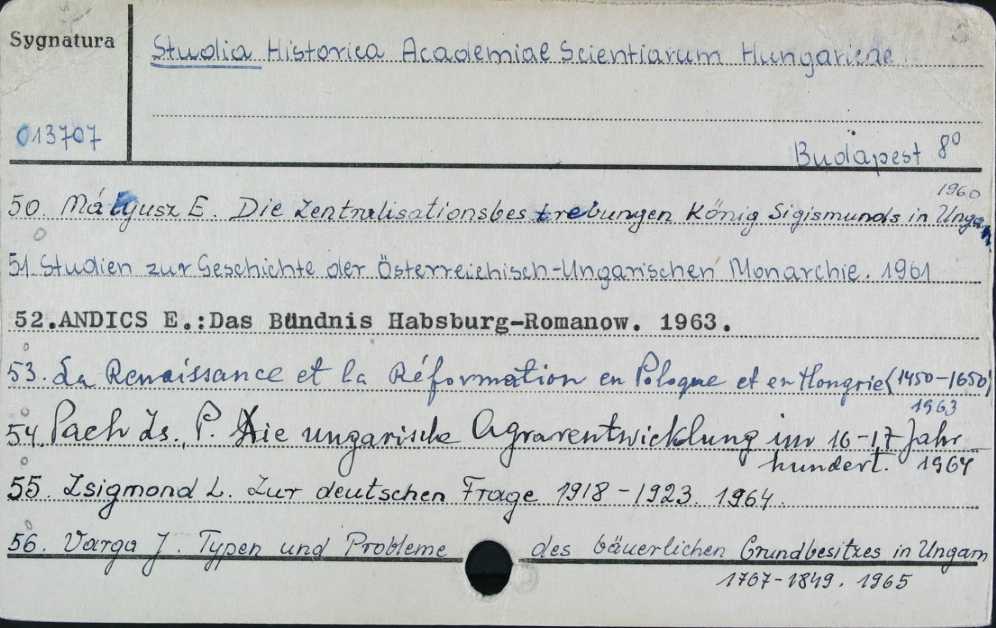 Sygnatura
Studia Historica Academiae Scientiarum Hungaricae
013707
Budapest 8º
1960
50. Mályusz E. Die Zentralisationsbestrebungen König Sigismunds in Ungarn
51. Studien zur Geschichte der Österreichisch-Ungarischen Monarchie. 1961
52. ANDICS E.: Das Bündnis Habsburg-Romanow. 1963.
53. La Renaissance et la Réformation en Pologne et en Hongrie (1450-1650)
1963
54. Pach Zs. P. Die ungarische Agrarentwicklung im 16-17 Jahr
hundert. 1964
55. Zsigmond L. Zur deutschen Frage 1918-1923. 1964.
56. Varga J. Typen und Probleme des bäuerlichen Grundbesitzes in Ungarn
1767-1849. 1965